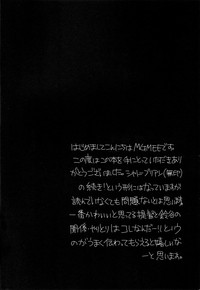 はじめましてこんにちは MGMEEです。
この度はこの本を手にとっていただきあり
がとうございました。シャレーププリアン(無印)
の続き!という形にはなっていますが
読んでいなくても問題ないとは思います
一番かわいいと思ってる
関係・やりとりはコレなんだー!!という
のがうまく伝わってもらえると嬉しいな
ーと思います。